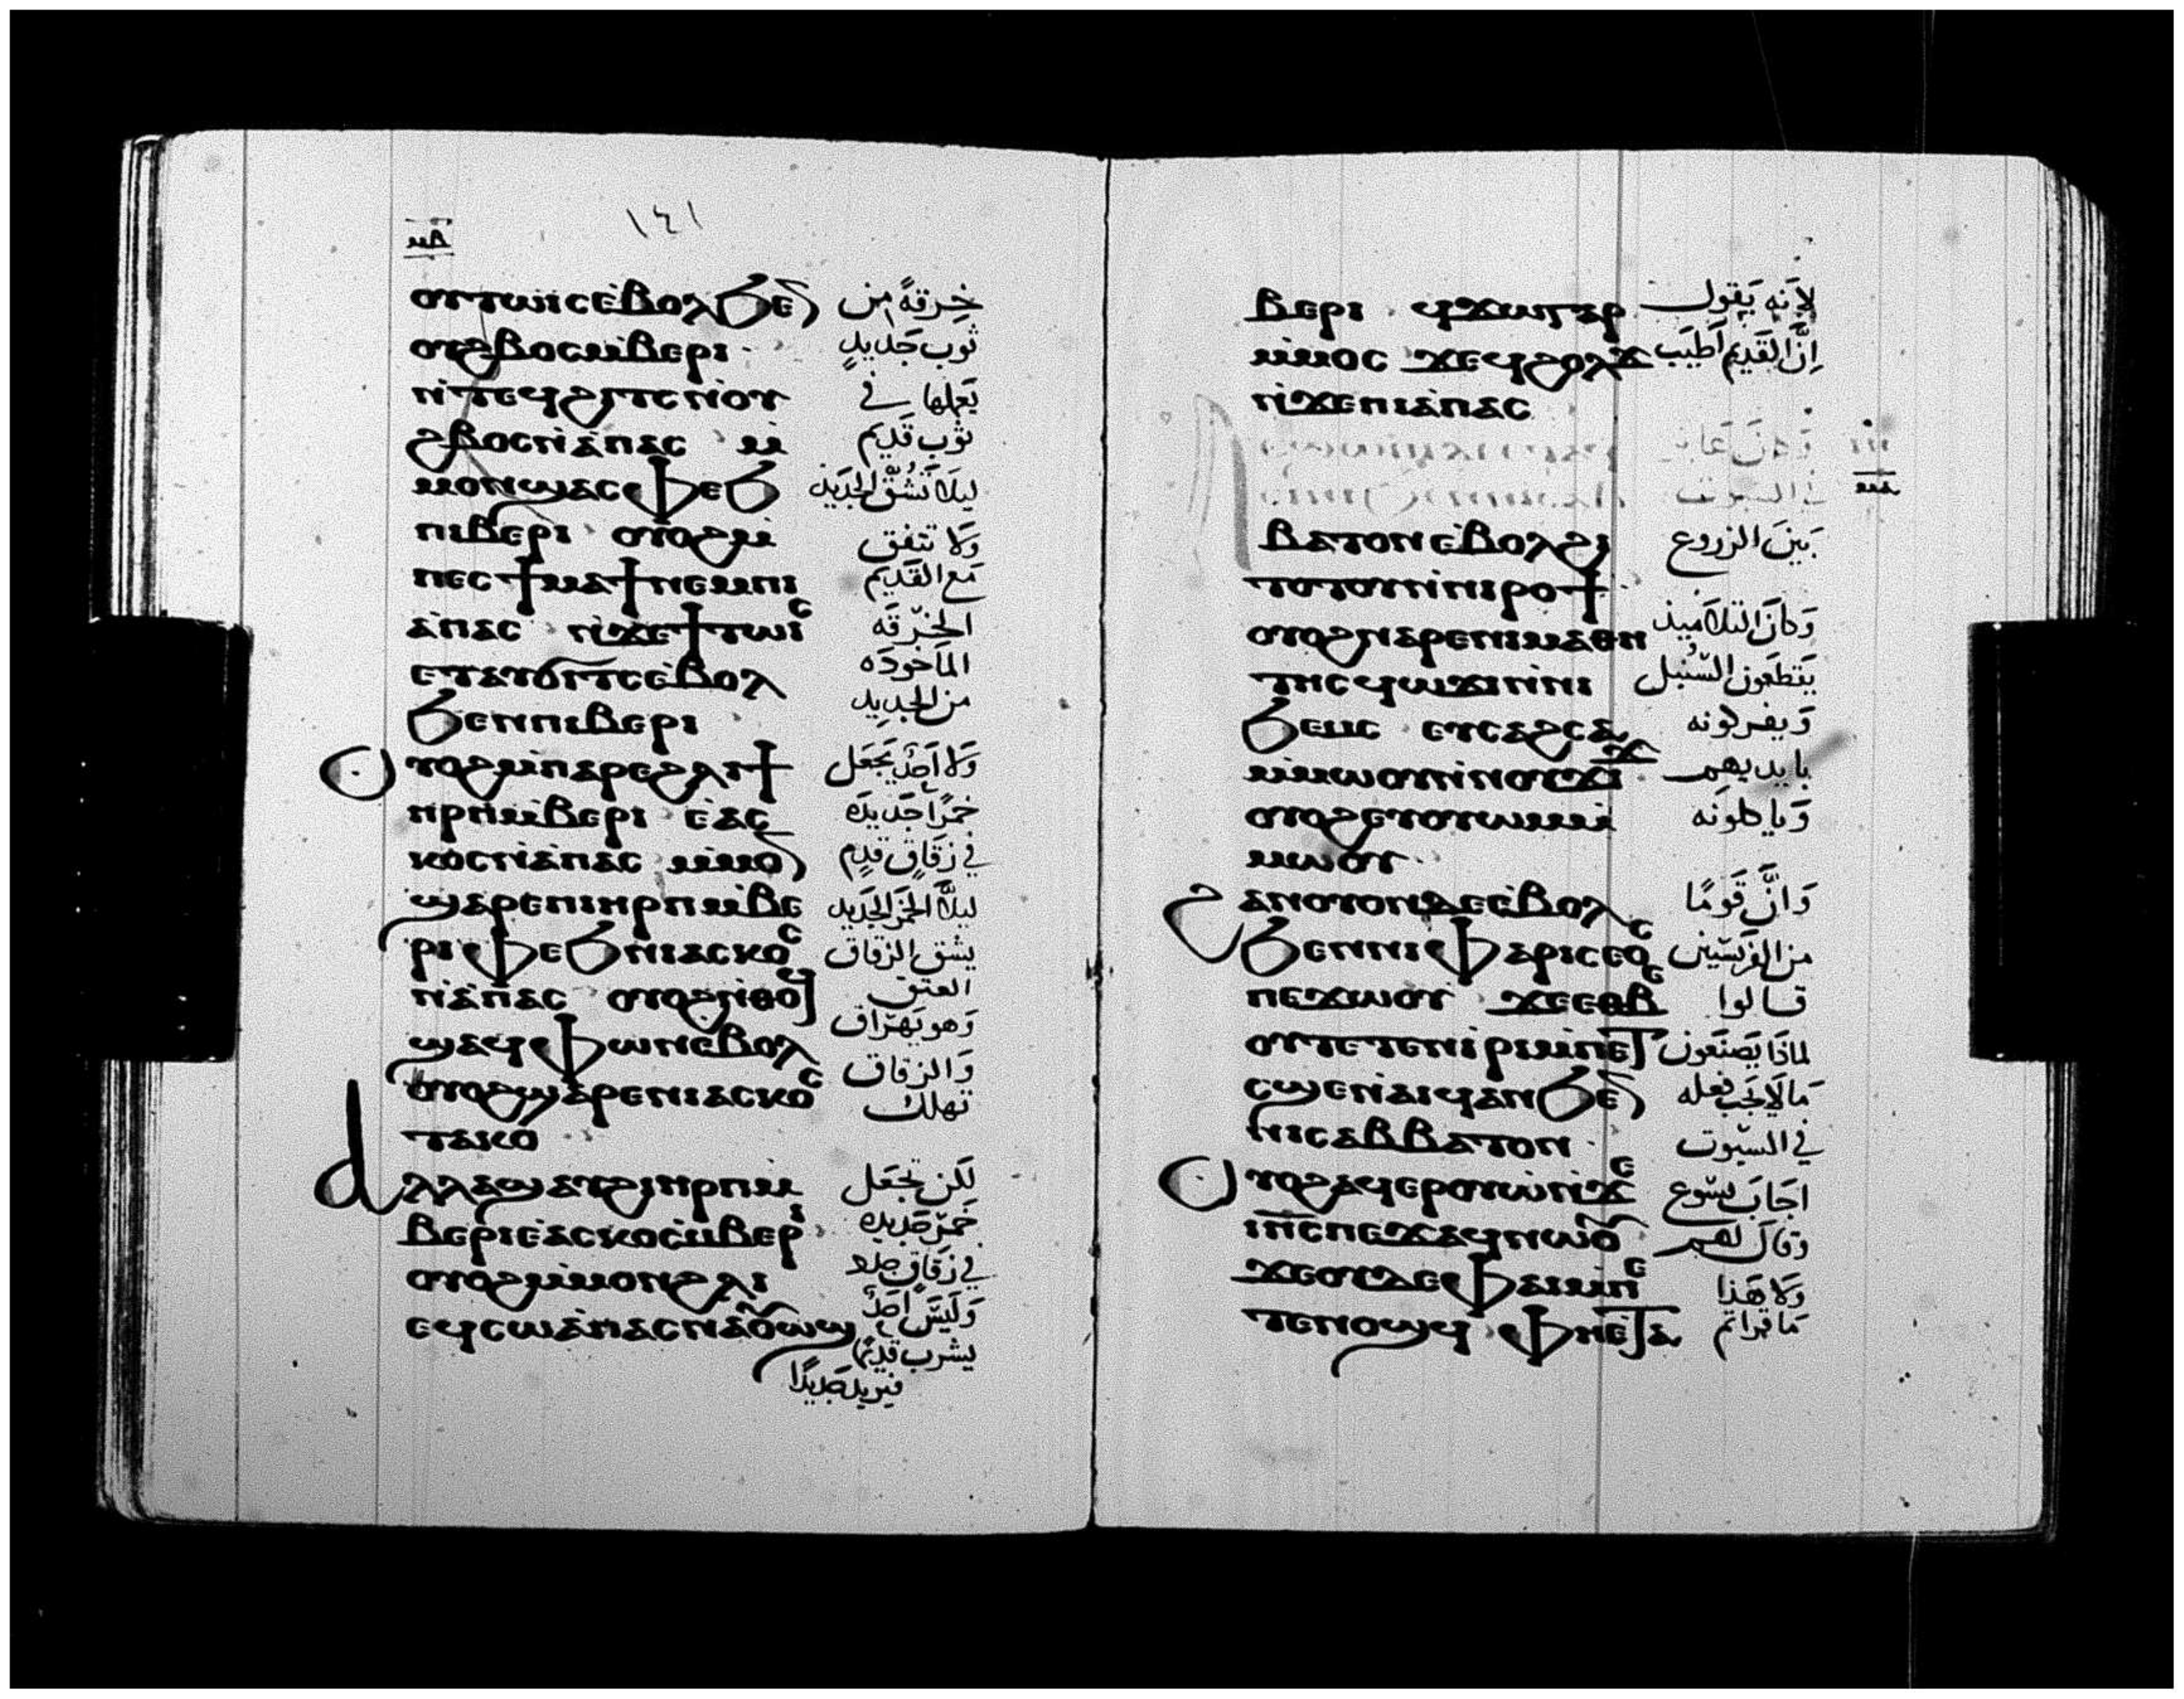 ١٤١
ⲟⲩⲧⲱⲓⲥ ⲉ̀ⲃⲟⲗϧⲉⲛ خرقةً من
ⲟⲩϩⲃⲟⲥⲙ̀ⲃⲉⲣⲓ ثوب جَديدٍ
ⲛ̀ⲧⲉϥϩⲓⲧⲥ ⲛ̀ⲟⲩ يَعلها في
ϩⲃⲟⲥⲛ̀ⲁ̀ⲡⲁⲥ ⲙ̀ ثوب قَديم
ⲙⲟⲛϣⲁⲥⲫⲉϧ ليلَا تَشُقّ الجَديد
ⲡⲓⲃⲉⲣⲓ ⲟⲩⲟϩⲙ̀ وَلا تتفق
ⲡⲉⲥϯⲙⲁϯⲛⲉⲙⲡⲓ مَع القَديم
ⲁ̀ⲡⲁⲥ ⲛ̀ϫⲉϯⲧⲱⲓⲥ الخرقَه
ⲉⲧⲁⲩⲟⲗⲥ ⲉ̀ⲃⲟⲗ الماَخودَه
ϧⲉⲛⲡⲓⲃⲉⲣⲓ من الجديد
ⲟⲩⲟϩⲙ̀ⲡⲁⲣⲉϩⲗⲓϯ وَلا اَحدٌ يَجعَل
ⲏⲣⲡⲙ̀ⲃⲉⲣⲓ ⲉ̀ⲁⲥ خمرًا جَديدَه
ⲕⲟⲥⲛ̀ⲁ̀ⲡⲁⲥ ⲙ̀ⲙⲟⲛ في زقَاقٍ قدِيم
ϣⲁⲣⲉⲡⲓⲏⲣⲡⲙ̀ⲃⲉ ليلَّا الخمَر الجَديد
ⲣⲓⲫⲉϧⲛⲓⲁⲥⲕⲟⲥ يشق الزقاق
ⲛ̀ⲁ̀ⲡⲁⲥ ⲟⲩⲟϩⲛ̀ⲑⲟϥ العتق
ϣⲁϥⲫⲱⲛⲉ̀ⲃⲟⲗ وَهو يَهرَاق
ⲟⲩⲟϩϣⲁⲣⲉⲛⲓⲁⲥⲕⲟⲥ وَالزقاق
ⲧⲁⲕⲟ تهلك
ⲁⲗⲗⲁϣⲁⲩϩⲓⲏⲣⲡⲙ̀ لَكن تجعَل
ⲃⲉⲣⲓⲉ̀ⲁⲥⲕⲟⲥⲙ̀ⲃⲉⲣⲓ خمر جَديده
ⲟⲩⲟϩⲙ̀ⲙⲟⲛϩⲗⲓ في زقَاقٍ جدد
ⲉϥⲥⲱⲁ̀ⲡⲁⲥⲛⲁⲟⲩⲱϣ وَليَس اَحدٌ
يشرب قديمًا
فيريد جَديدًا
ⲃⲉⲣⲓ ϥϫⲱⲅⲁⲣ لاِنه يَقول
ⲙ̀ⲙⲟⲥ ϫⲉϥϩⲟⲗϫ اِنَّ القَديم اَطيَب
ⲛ̀ϫⲉⲡⲓⲁ̀ⲡⲁⲥ
ⲃⲁⲧⲟⲛⲉ̀ⲃⲟⲗϩⲓ بَينَ الزروع
ⲧⲟⲧⲟⲩⲛ̀ⲛⲓⲣⲟϯ
ⲟⲩⲟϩⲛⲁⲣⲉⲛⲓⲙⲁⲑⲏ وَكانَ التلاَميذ
ⲧⲏⲥϥⲱϫⲓⲛ̀ⲛⲓ يَقطعَون السُّنبل
ϧⲉⲙⲥ ⲉⲩⲥⲁϩⲥⲁϩ وَيفركونه
ⲙ̀ⲙⲱⲟⲩⲛ̀ⲛⲟⲩϫⲓϫ بايديهم
ⲟⲩⲟϩⲉⲩⲟⲩⲱⲙⲙ̀ وَياكلونَه
ⲙⲱⲟⲩ
ϩⲁⲛⲟⲩⲟⲛⲇⲉⲉ̀ⲃⲟⲗ وَانَّ قَومًا
ϧⲉⲛⲛⲓⲫⲁⲣⲓⲥⲉⲟⲥ من الفرَيسّيين
ⲡⲉϫⲱⲟⲩ ϫⲉⲉⲑⲃⲉ قالوا
ⲟⲩⲧⲉⲧⲉⲛⲓⲣⲓⲙ̀ⲡⲉⲧ لماذَا يَصنَعون
ⲥϣⲉⲛ̀ⲁⲓϥⲁⲛϧⲉⲛ مَا لَا يَجب فعله
ⲛⲓⲥⲁⲃⲃⲁⲧⲟⲛ في السبّوت
ⲟⲩⲟϩⲁϥⲉⲣⲟⲩⲱ̀ⲛ̀ϫⲉ اجَابَ يسّوع
ⲓⲏⲥⲡⲉϫⲁϥⲛⲱⲟⲩ وقالَ لهم
ϫⲉⲟⲩⲇⲉⲫⲁⲓⲙ̀ⲡⲉ وَلا هَذا
ⲧⲉⲛⲟϣϥ ⲫⲏⲉⲧⲁ مَا قراتم